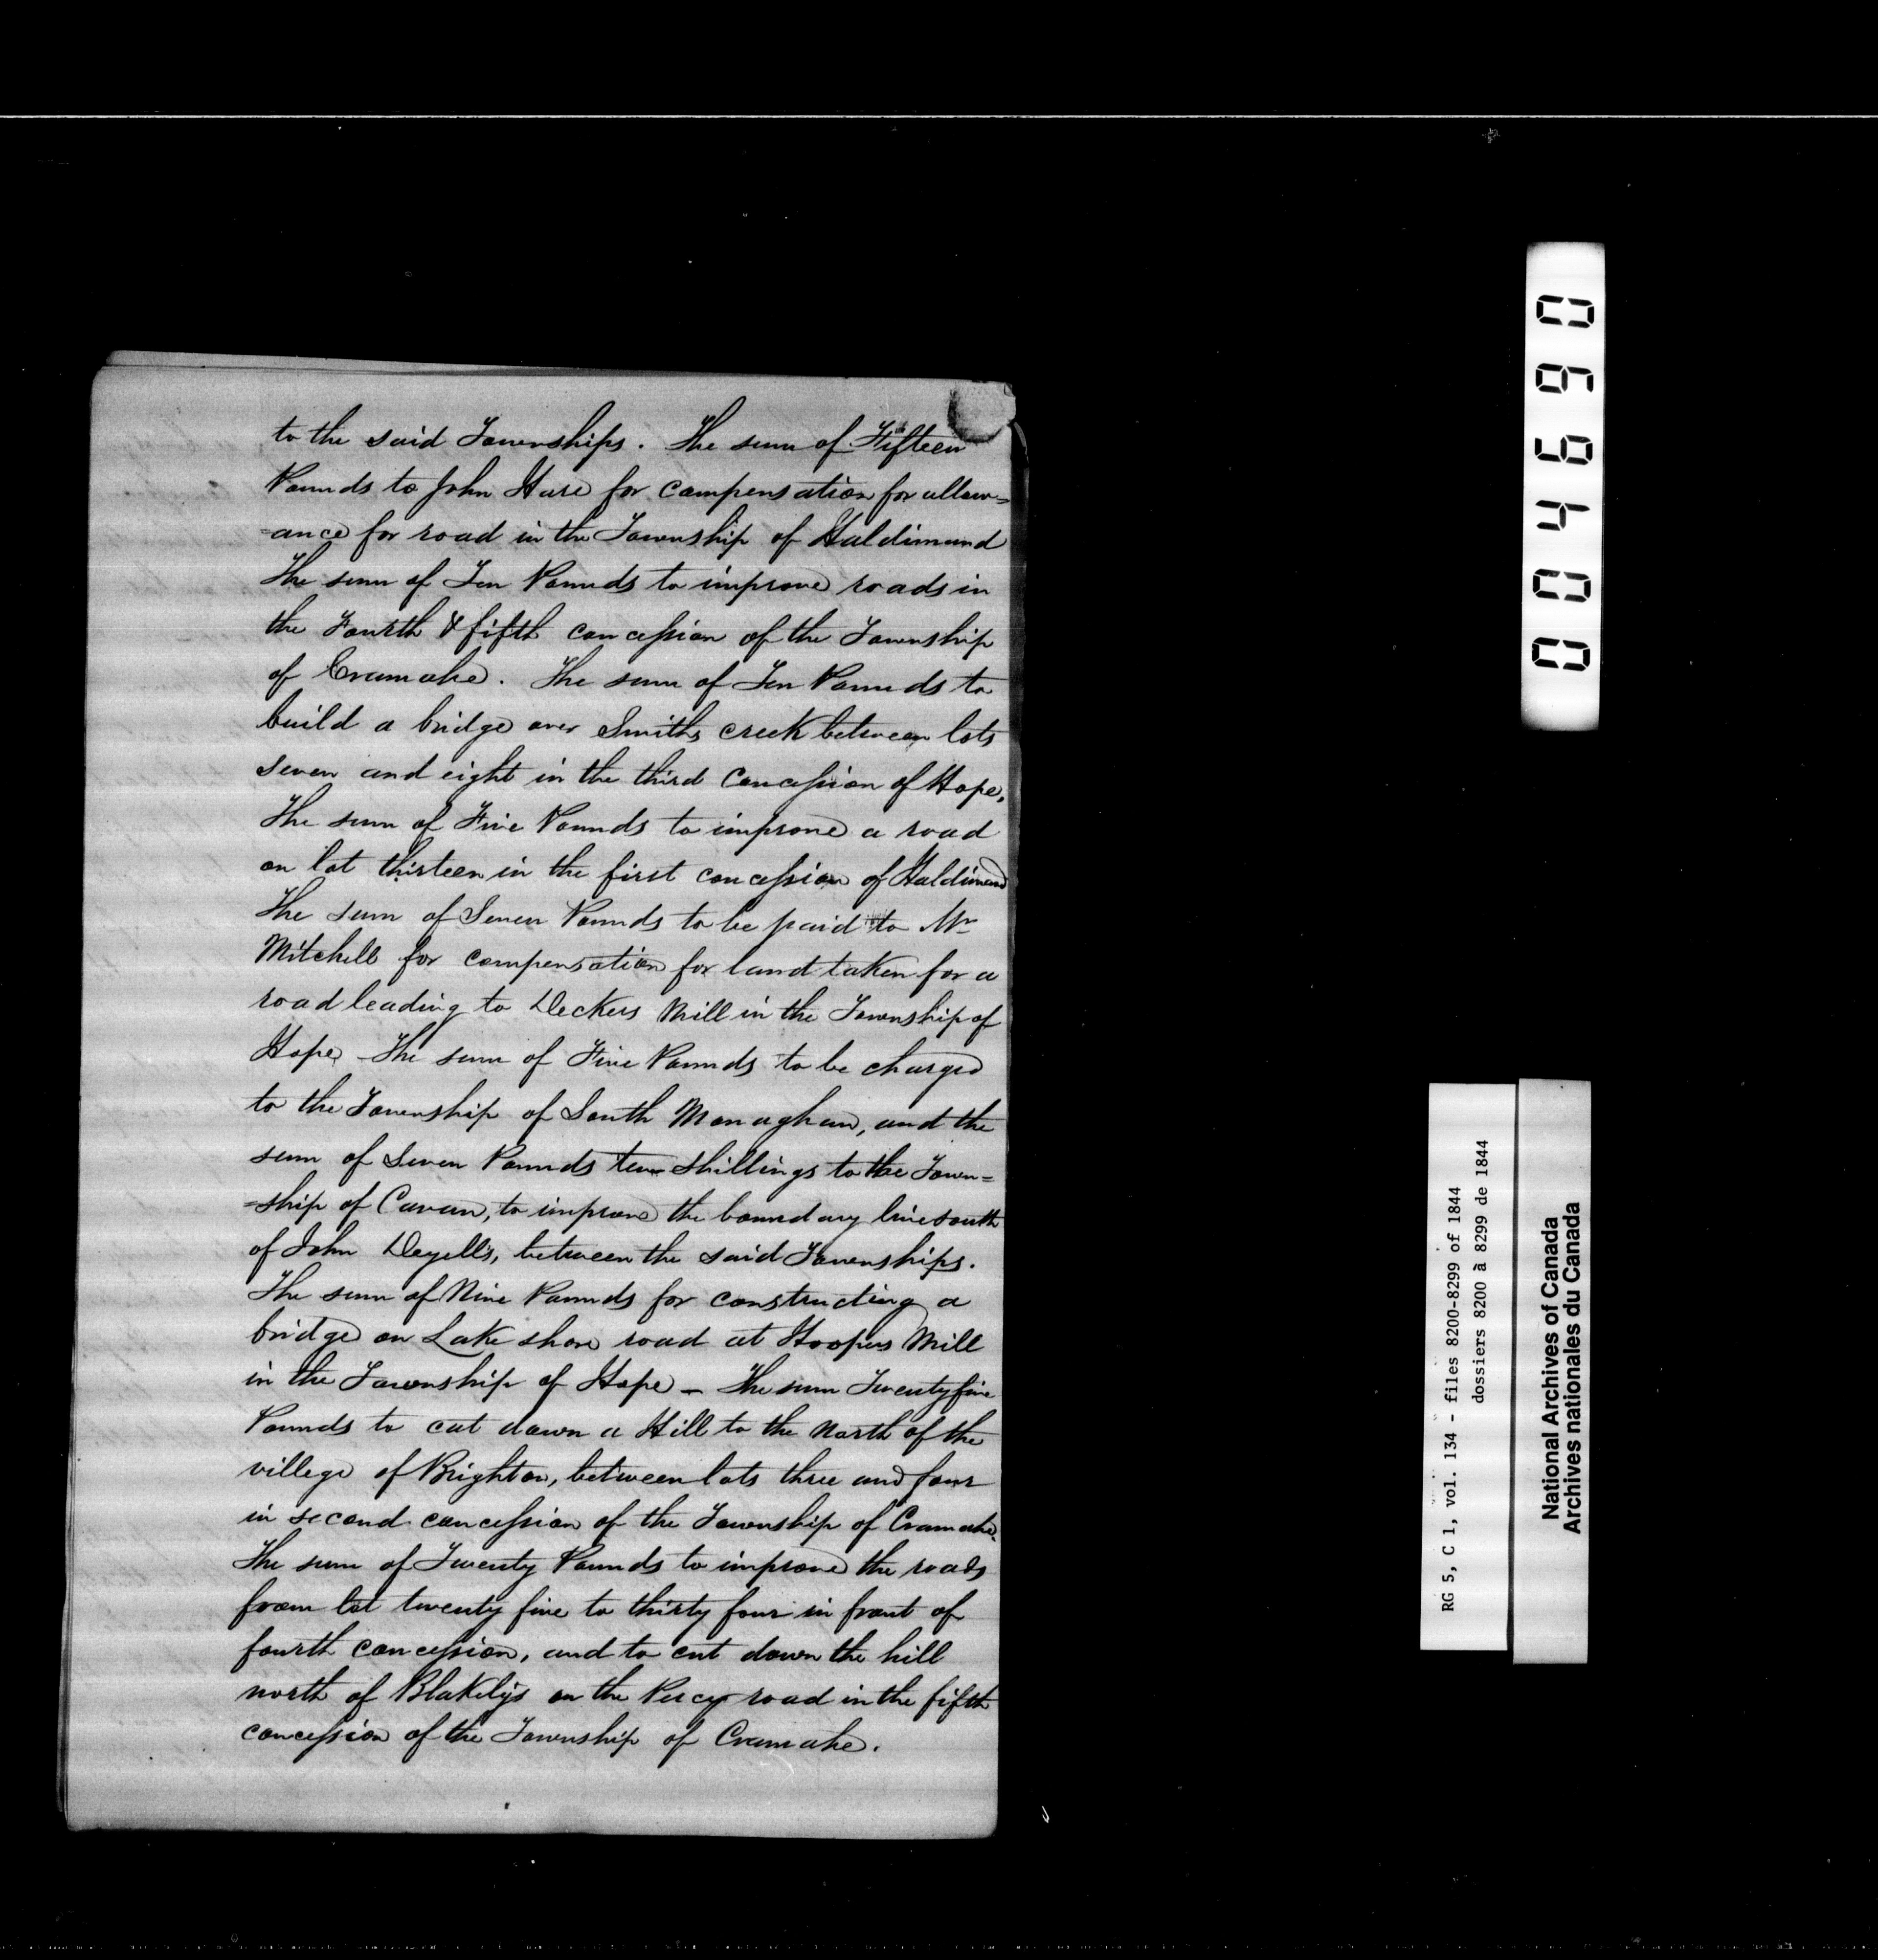 to the said Townships. The sum of Fifteen
Pounds to John Hare for compensation for allow=
=ance for road in the Township of Haldimand
The sum of Ten Pounds to improve roads in
the Fourth & fifth concession of the Township
of Cramahe. The sum of Ten Pounds to
build a bridge over Smiths creek between lots
seven and eight in the third Concession of Hope.
The sum of Five Pounds to improve a road
on lot thirteen in the first concession of Haldimand
The sum of Seven Pounds to be paid to Mr
Mitchell for compensation for land taken for a
road leading to Deckers Mill in the Township of
Hope - The sum of Five Pounds to be charged
to the Township of South Monaghan, and the
sum of Seven Pounds ten shillings to the Town=
=ship of Cavan, to improve the boundary line south
of John Deyell's, between the said Townships.
The sum of Nine Pounds for constructing a
bridge on Lake shore road at Hoopers Mill
in the Township of Hope - The sum Twenty five
Pounds to cut down a Hill to the North of the
village of Brighton, between lots three and four
in second concession of the Township of Cramahe.
The sum of Twenty Pounds to improve the roads
from lot twenty five to thirty four in front of
fourth concession, and to cut down the hill
north of Blakely's on the Percy road in the fifth
concession of the Township of Cramahe.
004690
RG 5, C 1, vol. 134 - files 8200-8299 of 1844
dossiers 8200 à 8299 de 1844
National Archives of Canada
Archives nationales du Canada